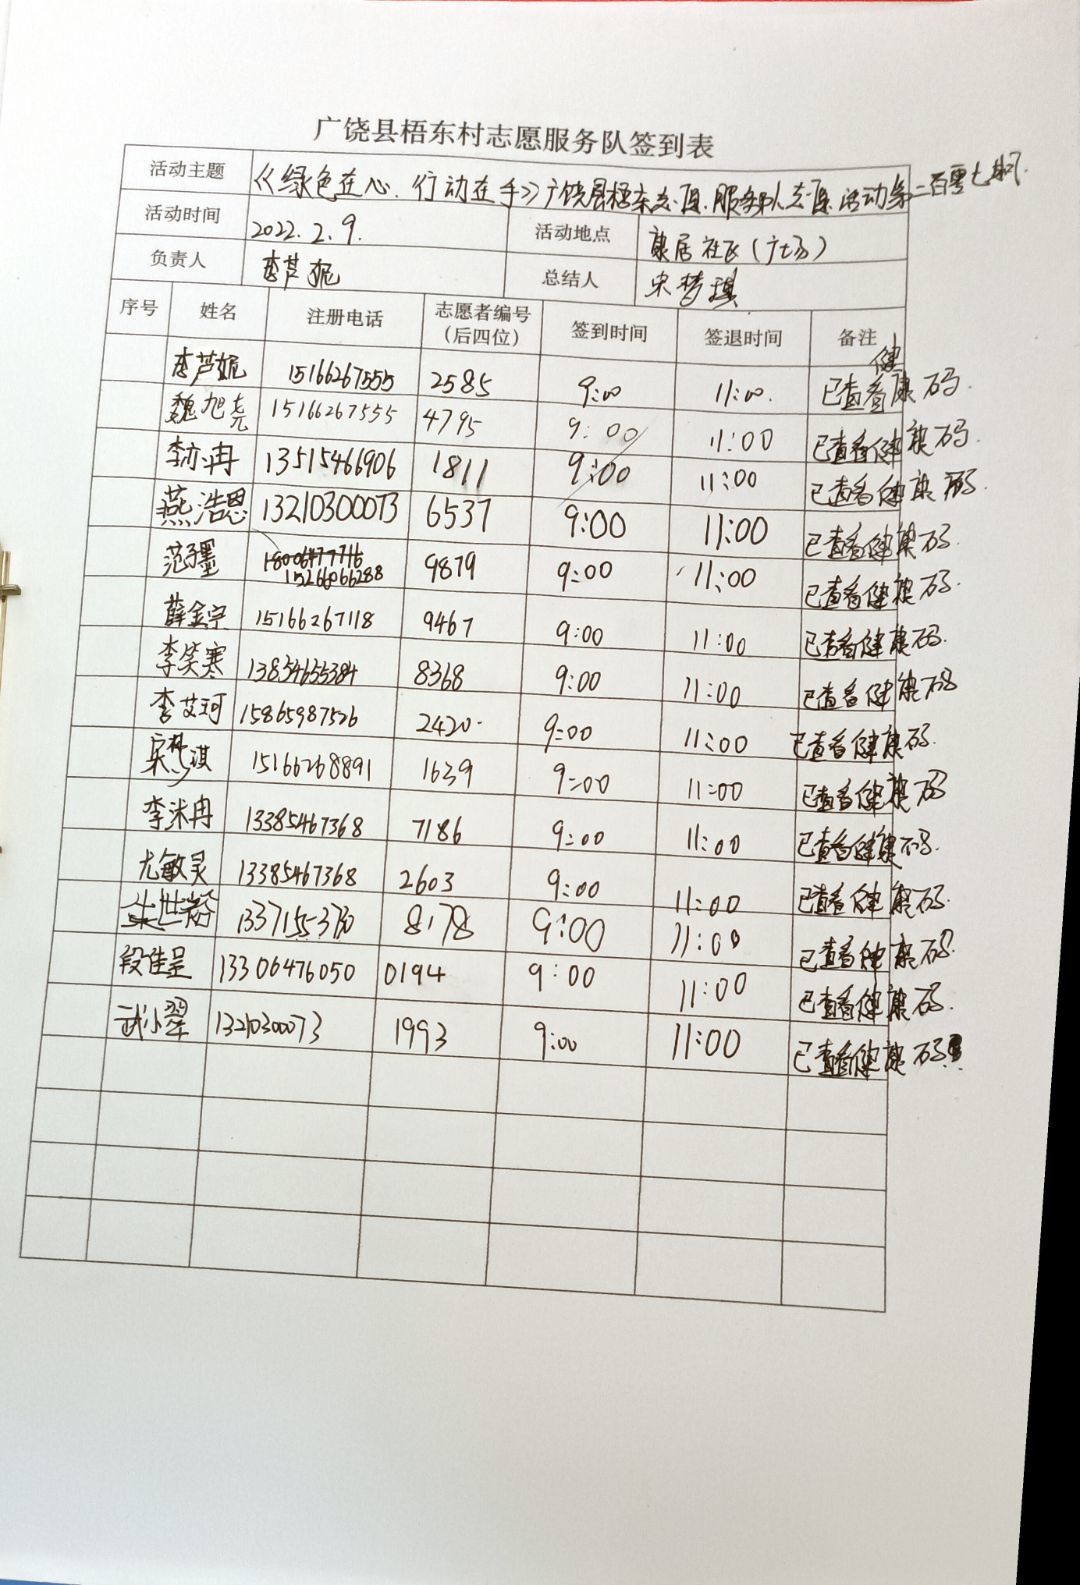 广饶县梧东村志愿服务队签到表
活动主题 《绿色在心.行动在手》广饶县梧东志愿.服务队志愿.活动第二百零七期.
活动时间 2022.2.9. 活动地点 康居社区(广场)
负责人 李芦妮 总结人 宋梦琪
序号 姓名 注册电话 志愿者编号(后四位) 签到时间 签退时间 备注
李芦妮 15166267555 2585 9:00 11:00. 已查看健康码.
魏旭尧 15166267555 4795 9:00 11:00 已查看健康码.
李亦冉 13515466906 1811 9:00 11:00 已查看健康码.
燕浩恩 13210300073 6537 9:00 11:00 已查看健康码.
范子墨 15266066288 9879 9:00 11:00 已查看健康码.
薛金宁 15166267118 9467 9:00 11:00 已查看健康码.
李笑寒 13854655384 8368 9:00 11:00 已查看健康码
李艾珂 15865987526 2420 9:00 11:00 已查看健康码.
宋梦淇 15166268891 1639 9:00 11:00 已查看健康码
李沭冉 13385467368 7186 9:00 11:00 已查看健康码.
尤敏灵 13385467368 2603 9:00 11:00 已查看健康码.
8178 9:00 11:00 已查看健康码.
段佳昱 13306476050 0194 9:00 11:00 已查看健康码.
武小翠 13210300073 1993 9:00 11:00 已查看健康码